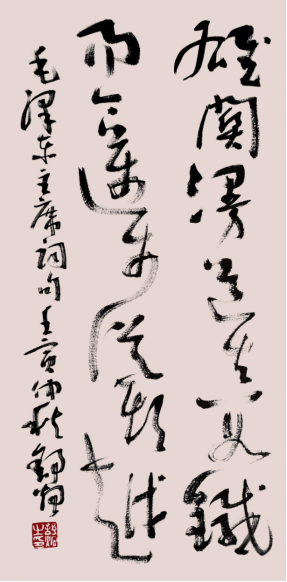 雄關漫道真如鐵
而今邁步從頭越
毛澤东主席詞句壬寅仲秋